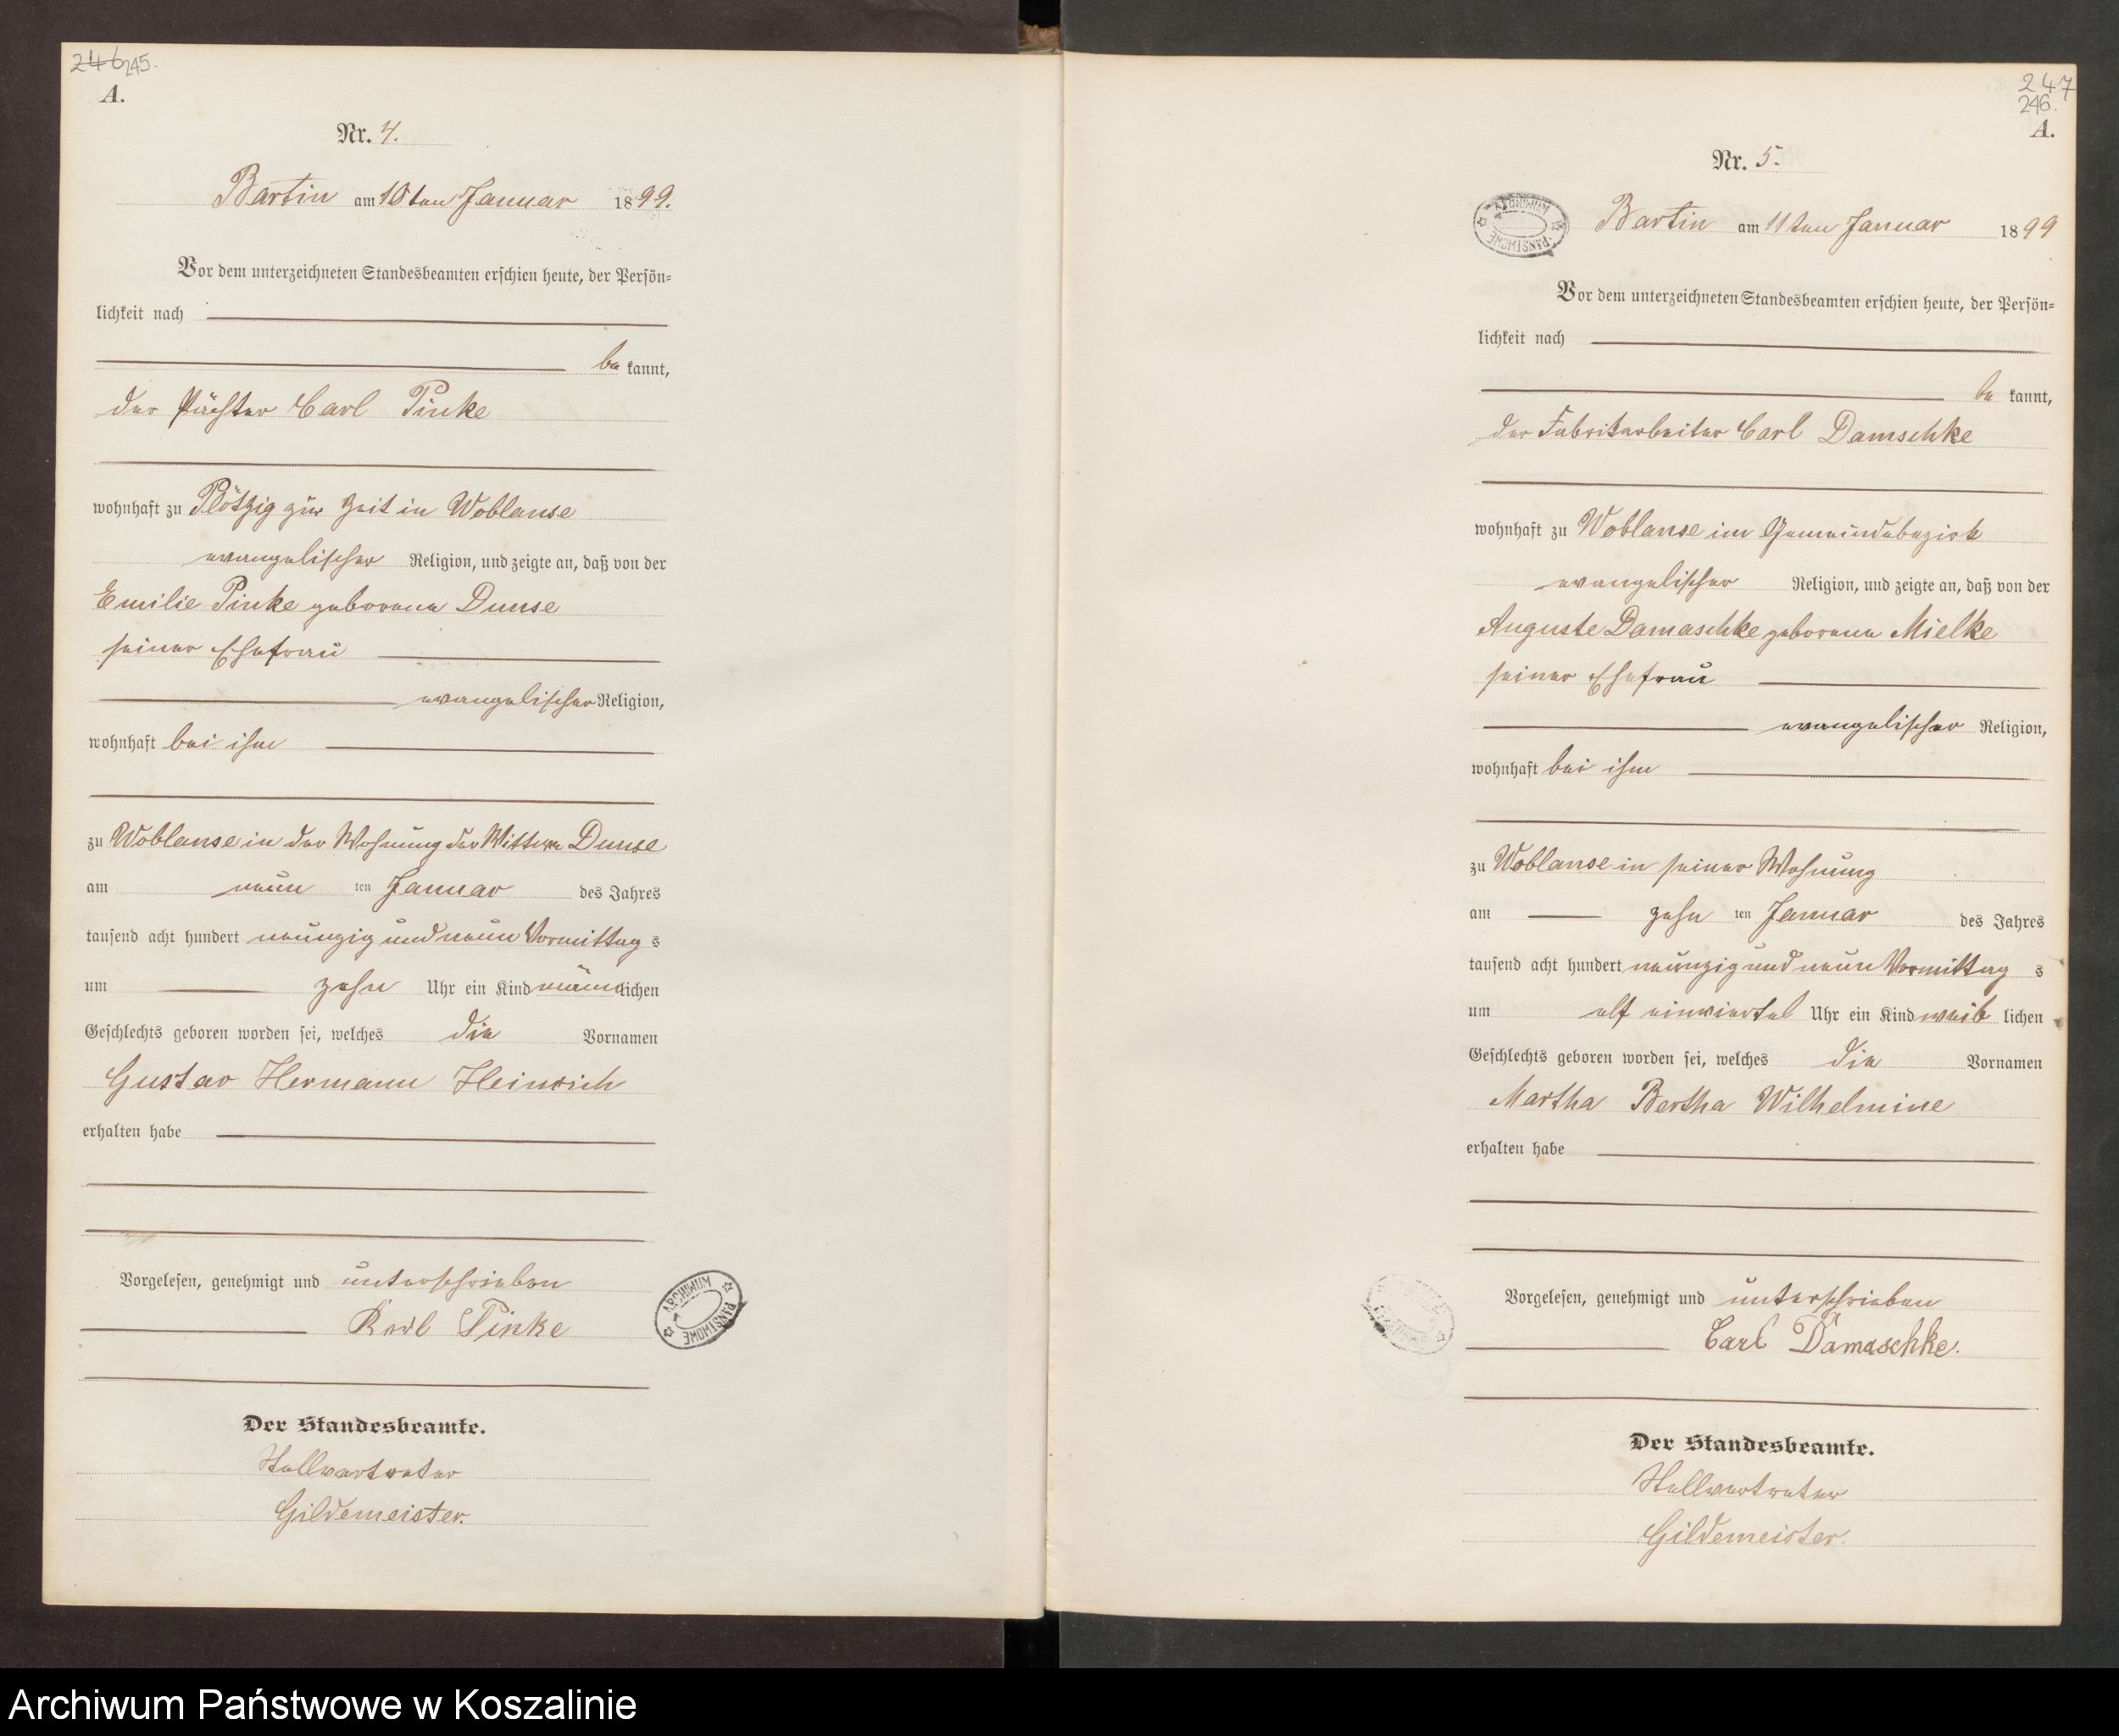 246 245.
A.
Nr. 4.
Bartin am 10ten Januar 1899.
Vor dem unterzeichneten Standesbeamten erschien heute, der Persön-
lichkeit nach
be kannt,
der Pächter Carl Pinke
wohnhaft zu Plötzig zur Zeit in Woblanse
evangelischer Religion, und zeigte an, daß von der
Emilie Pinke geborene Dunse
seiner Ehefrau
evangelischer Religion,
wohnhaft bei ihm
zu Woblanse in der Wohnung der Wittwe Dunse
am neun ten Januar des Jahres
tausend acht hundert neunzig und neun Vormittag s
um zehn Uhr ein Kind männlichen
Geschlechts geboren worden sei, welches die Vornamen
Gustav Hermann Heinrich
erhalten habe
Vorgelesen, genehmigt und unterschrieben
Karl Pinke
ARCHIWUM PAŃSTWOWE
Der Standesbeamte.
Stellvertreter
Gildemeister.
247
246.
A.
Nr. 5.
ARCHIWUM PAŃSTWOWE
Bartin am 11ten Januar 1899
Vor dem unterzeichneten Standesbeamten erschien heute, der Persön-
lichkeit nach
be kannt,
der Fabrikarbeiter Carl Damschke
wohnhaft zu Woblanse im Gemeindebezirk
evangelischer Religion, und zeigte an, daß von der
Auguste Damaschke geborene Mielke
seiner Ehefrau
evangelischer Religion,
wohnhaft bei ihm
zu Woblanse in seiner Wohnung
am zehn ten Januar des Jahres
tausend acht hundert neunzig und neun Vormittag s
um elf einviertel Uhr ein Kind weib lichen
Geschlechts geboren worden sei, welches die Vornamen
Martha Bertha Wilhelmine
erhalten habe
Vorgelesen, genehmigt und unterschrieben
Carl Damaschke.
Der Standesbeamte.
Stellvertreter
Gildemeister.
Archiwum Państwowe w Koszalinie